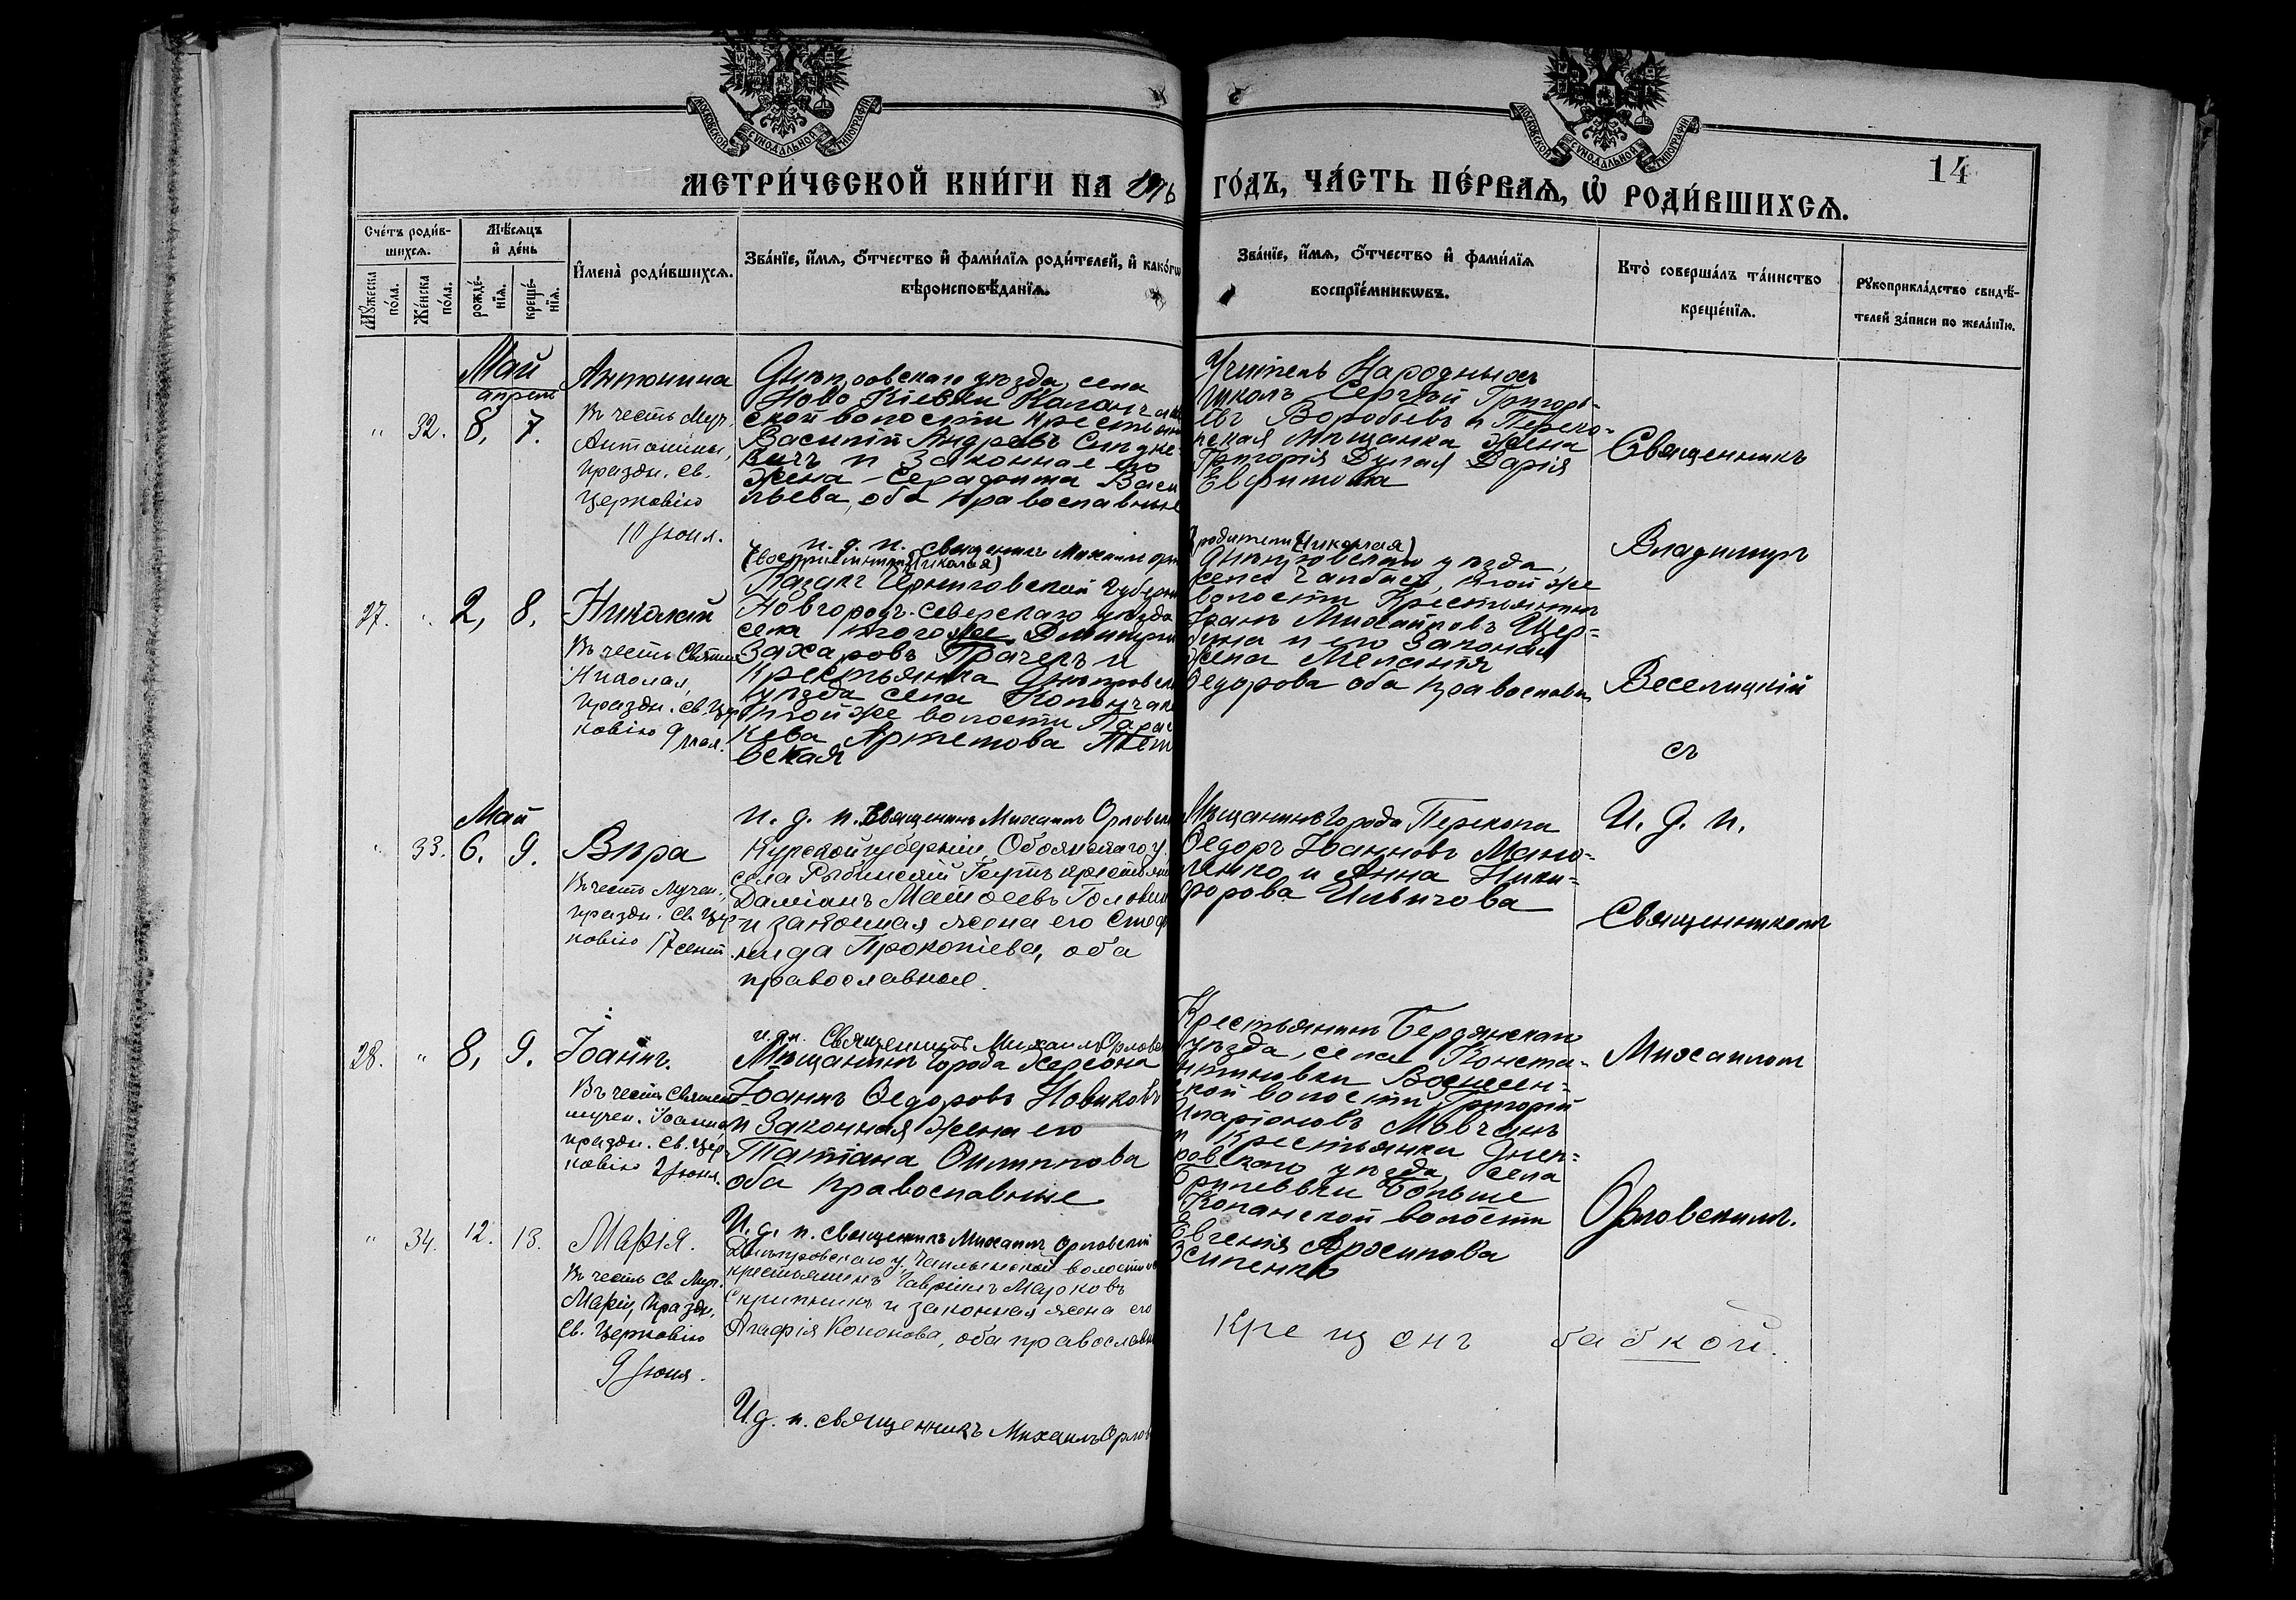 МОСКОВСКОЙ СУНОДАЛЬНОЙ ТИПОГРАФІИ
МОСКОВСКОЙ СУНОДАЛЬНОЙ ТИПОГРАФІИ
14
МЕТРИ́ЧЕСКОЙ КНИ́ГИ НА 1896
ГО́ДЪ, ЧА́СТЬ ПЕ́РВАѦ, Ѽ РОДИ́ВШИХСѦ.
Сче́тъ роди́в-
шихся.
Мꙋ́жеска
по́ла.
Же́нска
по́ла.
Мѣ́сяцъ
и҆ де́нь
рожде́-
нїѧ.
креще́-
нїѧ.
И҆мена̀ роди́вшихсѧ.
Зва́нїе, и҆́мѧ, ѻ҆́тчество и҆ фами́лїѧ роди́телей, и҆ како́гѡ
вѣроисповѣ́данїѧ.
Зва́нїе, и҆́мѧ, ѻ҆́тчество и҆ фами́лїѧ
воспрїе́мникѡвъ.
Кто̀ соверша́лъ та́инство
креще́нїѧ.
Рꙋкоприкла́дство свидѣ́-
телей за́писи по жела́нїю.
Май
апрель
" 32. 8, 7.
Антонина
Въ честь Муч.
Антонины,
праздн. св.
Церковію
10 Іюня.
Днѣпровскаго уѣзда, села
Ново Кіевки Каланчак
ской волости крестьянинъ
Василій Андреевъ
и Законная его
жена Серафима Васи
льева, оба православные
и. д. п. священникъ Михаилъ
Учитель Народныхъ
школъ Сергѣй Григорь-
евъ Воробьевъ и Переко-
пская мѣщанка жена
Григорія Дулая Дарія
Евфимова
Священникъ
Владимиръ
Веселицкій
съ
И. д. п.
Священникомъ
Михаиломъ
Орловскимъ.
27. " 2, 8.
Николай
Въ честь Святит.
Николая,
праздн. св. Цер
ковію 9 мая.
(воспріемники Николая)
Черниговской губерніи
Новгородъ-Северскаго уѣзда
села тогоже Димитрій
Захаровъ и
Крестьянка Днѣпровска
уѣзда села Каланчак
тойже волости Парас
кева Артемова
вская
(родители Николая)
Днѣпровскаго уѣзда,
села Чалбасъ, той же
волости Крестьянинъ
Іоанъ Михаиловъ Щер=
бина и его Законая
жена Меланія
Ѳедорова оба православн
Май
" 33. 6. 9.
Вѣра
Въ честь Мучен.
праздн. Св. Цер
ковію 17 сент.
и. д. п. Священникъ Михаилъ Орловск
Курской губерніи, Обоянскаго у.
села крестьянинъ
Даміанъ Матѳеевъ
и законная жена его Стеф
нида Прокопіева, оба
православные.
Мѣщанинъ города Перекопа
Ѳедоръ Іоанновъ Мано-
иленко и Анна Ники=
форова
28. " 8, 9.
Іоаннъ.
Въ честь Священ
мучен. Іоанна
праздн. св. Цер
ковію 2 Іюня.
и. д. п. Священникъ Михаилъ Орловск
Мѣщанинъ города Херсона
Іоаннъ Ѳедоровъ Новиковъ
и Законная жена его
Татіана Филиппова
оба православные
Крестьянинъ Бердянскаго
уѣзда, села Конста-
нтиновки Вознесен-
ской волости Григорій
Иларіоновъ Мовчанъ
и Крестьянка Днеп=
ровскаго уѣзда, села
Бритевки Больше
Копанской волости
Евгенія Архипова
Осипенко
" 34. 12. 13.
Марія.
Въ честь Св. Муч.
Маріи, праздн.
Св. Церковію
9 Іюня.
И. д. п. священникъ Михаилъ Орловскій
Днѣпровскаго у. Чаплынской волости
крестьянинъ Гавріилъ Марковъ
Скрипникъ и законная жена его
Агафія Кононова, оба православн
Крещенъ бабкой.
И. д. п. священникъ Михаилъ Орлов